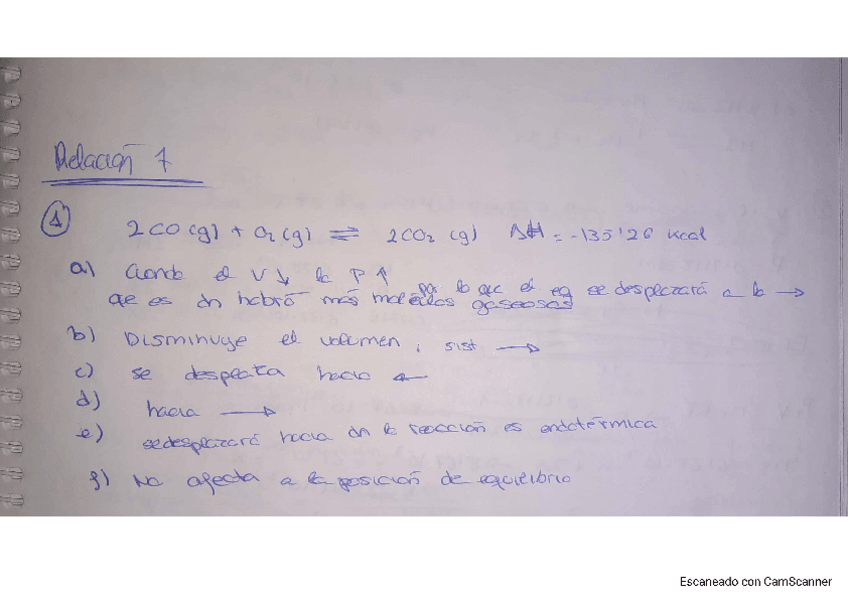 Relación 7
1 2CO (g) + O2 (g) ⇌ 2CO2 (g) ΔH = -135'26 Kcal
a) Cuando el V ↓ la P ↑ por lo que el eq se desplazará a la →
que es dn habrá más moléculas gaseosas
b) Disminuye el volumen, sist →
c) se desplaza hacia ←
d) hacia →
e) se desplazará hacia dn la reacción es endotérmica
f) No afecta a la posición de equilibrio
Escaneado con CamScanner